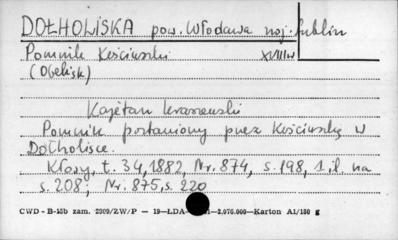 DOŁHOLISKA pow. Włodawa woj. Lublin
Pomnik Kościuszki XVIII w
(Obelisk)
Kajetan Kraszewski
Pomnik postawiony przez Kościuszkę w
Dołholisce.
Kłosy, t. 34, 1882, Nr. 874, s. 198, 1 il. na
s. 208; Nr. 875, s. 220
CWD - B-15b zam. 2909/ZW/P — 19—LDA— —2.076.000—Karton A1/180 g